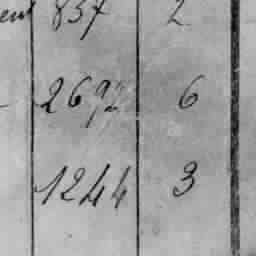 ent 837 2
2692 6
1244 3